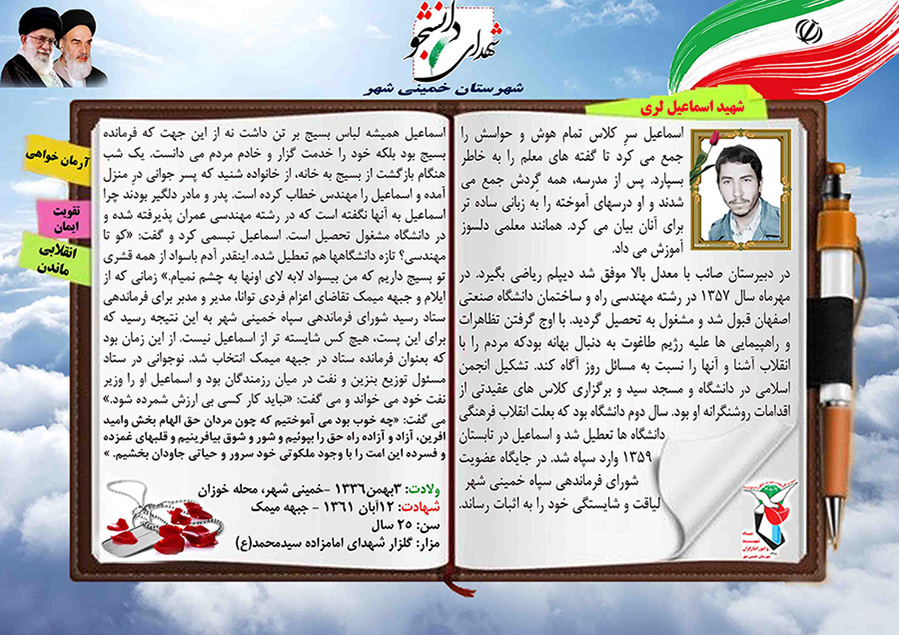 شهدای دانشجو
شهرستان خمینی شهر
شهید اسماعیل لری
اسماعیل سرِ کلاس تمام هوش و حواسش را
جمع می کرد تا گفته های معلم را به خاطر
بسپارد. پس از مدرسه، همه گِردش جمع می
شدند و او درسهای آموخته را به زبانی ساده تر
برای آنان بیان می کرد. همانند معلمی دلسوز
آموزش می داد.
در دبیرستان صائب با معدل بالا موفق شد دیپلم ریاضی بگیرد. در
مهرماه سال ۱۳۵۷ در رشته مهندسی راه و ساختمان دانشگاه صنعتی
اصفهان قبول شد و مشغول به تحصیل گردید. با اوج گرفتن تظاهرات
و راهپیمایی ها علیه رژیم طاغوت به دنبال بهانه بودکه مردم را با
انقلاب آشنا و آنها را نسبت به مسائل روز آگاه کند. تشکیل انجمن
اسلامی در دانشگاه و مسجد سید و برگزاری کلاس های عقیدتی از
اقدامات روشنگرانه او بود. سال دوم دانشگاه بود که بعلت انقلاب فرهنگی
دانشگاه ها تعطیل شد و اسماعیل در تابستان
۱۳۵۹ وارد سپاه شد. در جایگاه عضویت
شورای فرماندهی سپاه خمینی شهر
لیاقت و شایستگی خود را به اثبات رساند.
اسماعیل همیشه لباس بسیج بر تن داشت نه از این جهت که فرمانده
بسیج بود بلکه خود را خدمت گزار و خادم مردم می دانست. یک شب
هنگام بازگشت از بسیج به خانه، از خانواده شنید که پسر جوانی درِ منزل
آمده و اسماعیل را مهندس خطاب کرده است. پدر و مادر دلگیر بودند چرا
اسماعیل به آنها نگفته است که در رشته مهندسی عمران پذیرفته شده و
در دانشگاه مشغول تحصیل است. اسماعیل تبسمی کرد و گفت: «کو تا
مهندسی؟ تازه دانشگاهها هم تعطیل شده. اینقدر آدم باسواد از همه قشری
تو بسیج داریم که من بیسواد لابه لای اونها به چشم نمیام.» زمانی که از
ایلام و جبهه میمک تقاضای اعزام فردی توانا، مدیر و مدبر برای فرماندهی
ستاد رسید شورای فرماندهی سپاه خمینی شهر به این نتیجه رسید که
برای این پست، هیچ کس شایسته تر از اسماعیل نیست. از این زمان بود
که بعنوان فرمانده ستاد در جبهه میمک انتخاب شد. نوجوانی در ستاد
مسئول توزیع بنزین و نفت در میان رزمندگان بود و اسماعیل او را وزیر
نفت خود می خواند و می گفت: «نباید کار کسی بی ارزش شمرده شود.»
می گفت: «چه خوب بود می آموختیم که چون مردان حق الهام بخش وامید
افرین، آزاد و آزاده راه حق را بپوئیم و شور و شوق بیافرینیم و قلبهای غمزده
و فسرده این امت را با وجود ملکوتی خود سرور و حیاتی جاودان بخشیم. »
ولادت: ۳بهمن۱۳۳۶ -خمینی شهر، محله خوزان
شهادت: ۱۲آبان ۱۳۶۱ - جبهه میمک
سن: ۲۵ سال
مزار: گلزار شهدای امامزاده سیدمحمد(ع)
آرمان خواهی
تقویت
ایمان
انقلابی
ماندن